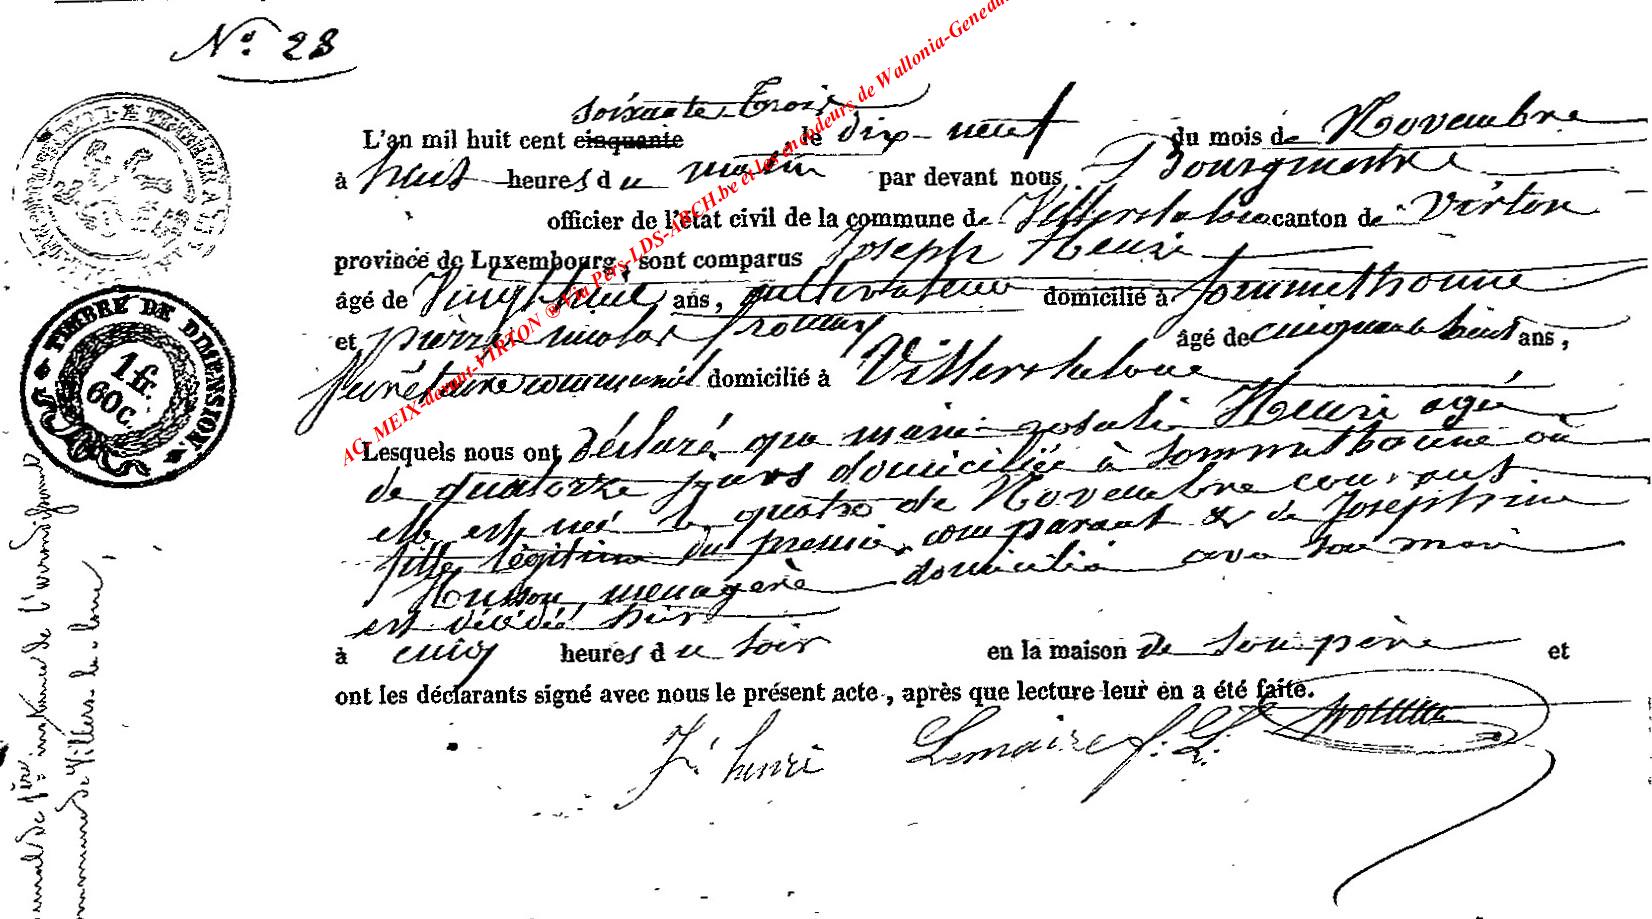 N° 28
soixante Trois
L'an mil huit cent cinquante le dix-neuf du mois de Novembre
à huit heures du matin par devant nous Bourgmestre
officier de l'état civil de la commune de Villers la loue canton de Virton
province de Luxembourg, sont comparus Joseph Henri
âgé de Vingt huit ans, cultivateur domicilié à Sommethonne
et pierre nicolas âgé de cinquante huit ans,
Secrétaire communal domicilié à Villers la loue
Lesquels nous ont déclaré que marie rosalie Henri agée
de quatorze jours domiciliée à Sommethonne où
elle est née le quatre de Novembre courant
fille légitime du premier comparant & de Joséphine
Husson menagère domicilié avec son mari
est décédée hier
à cinq heures du soir en la maison de son père et
ont les déclarants signé avec nous le présent acte, après que lecture leur en a été faite.
Jh henri Lemaire f. L.
TIMBRE DE DIMENSION.
1 fr.
60 c.
de 1ère instance de l'arrondissement
de Villers la loue,
AC MEIX-devant-VIRTON @ Via Pers-LDS-ARCH.be et les encodeurs de Wallonia-Genealo